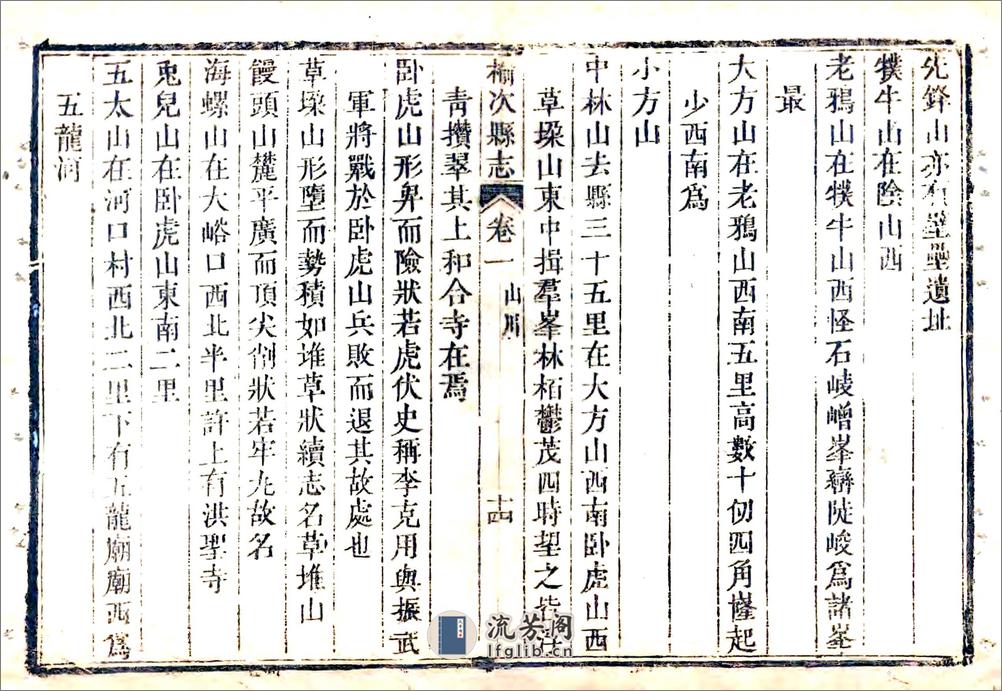 先鋒山亦有壁壘遺址
㹒牛山在陰山西
老鴉山在㹒牛山西怪石崚嶒峯巒陡峻爲諸峯
最
大方山在老鴉山西南五里高數十仞四角嶐起
少西南爲
小方山
中林山去縣三十五里在大方山西南卧虎山西
草垜山東中揖羣峯林栢鬱茂四時望之皆
榆次縣志
卷一
山川
十四
青攢翠其上和合寺在焉
卧虎山形昇而險狀若虎伏史稱李克用與振武
軍將戰於卧虎山兵敗而退其故處也
草垜山形墮而勢積如堆草狀續志名草堆山
饅頭山麓平廣而頂尖削狀若牢丸故名
海螺山在大峪口西北半里許上有洪聖寺
兎兒山在卧虎山東南二里
五太山在河口村西北二里下有五龍廟廟西爲
五龍河
流芳阁
lfglib.cn